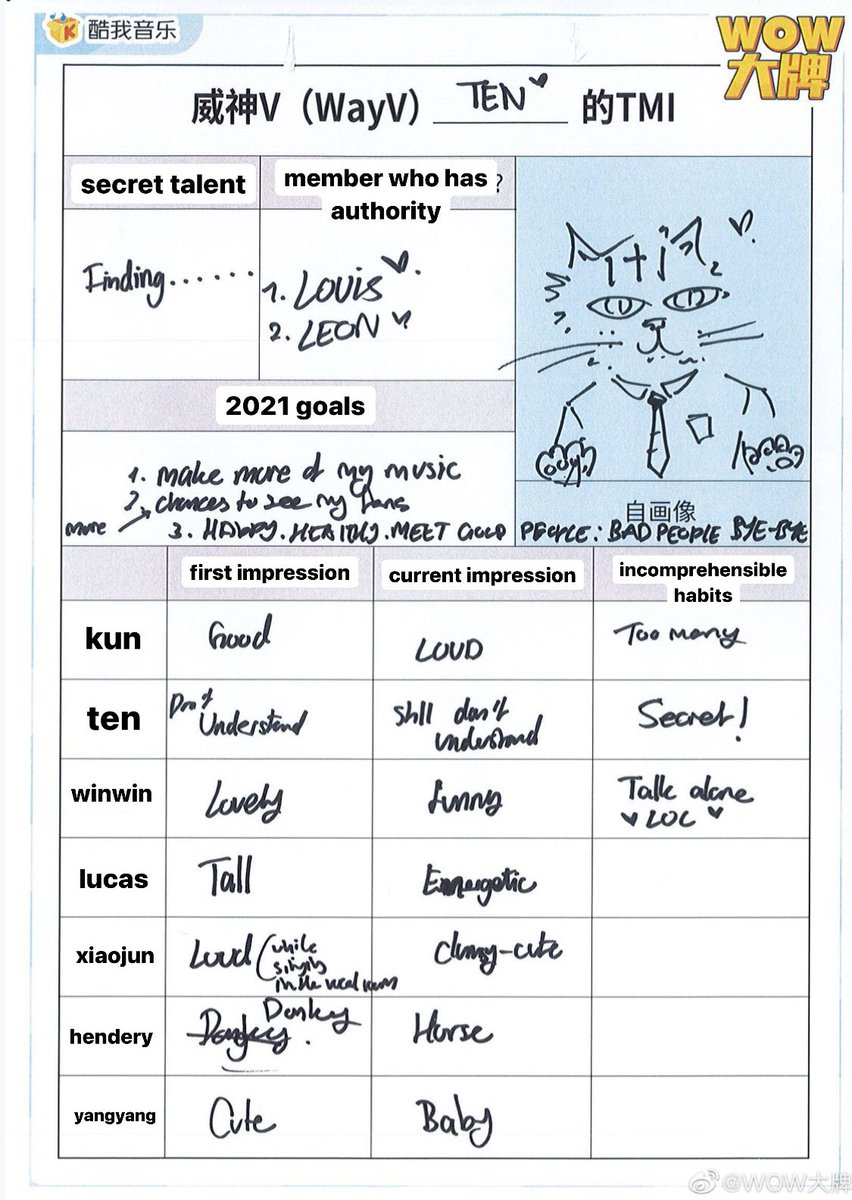 酷我音乐
WOW
大牌
威神V（WayV） TEN 的TMI
secret talent
member who has
authority
?
Finding......
1. LOUIS
2. LEON
2021 goals
1. make more of my music
2. chances to see my fans
more
3. HAPPY. HEALTHY. MEET GOOD
自画像
PEOPLE: BAD PEOPLE BYE-BYE
first impression
current impression
incomprehensible
habits
kun
Good
LOUD
Too many
ten
Don't
Understand
still don't
understand
Secret!
winwin
Lovely
funny
Talk alone
LOL
lucas
Tall
Energetic
xiaojun
Loud (while
singing
in the vocal room
clumsy-cute
hendery
Donkey
Donkey.
Horse
yangyang
Cute
Baby
@WOW大牌